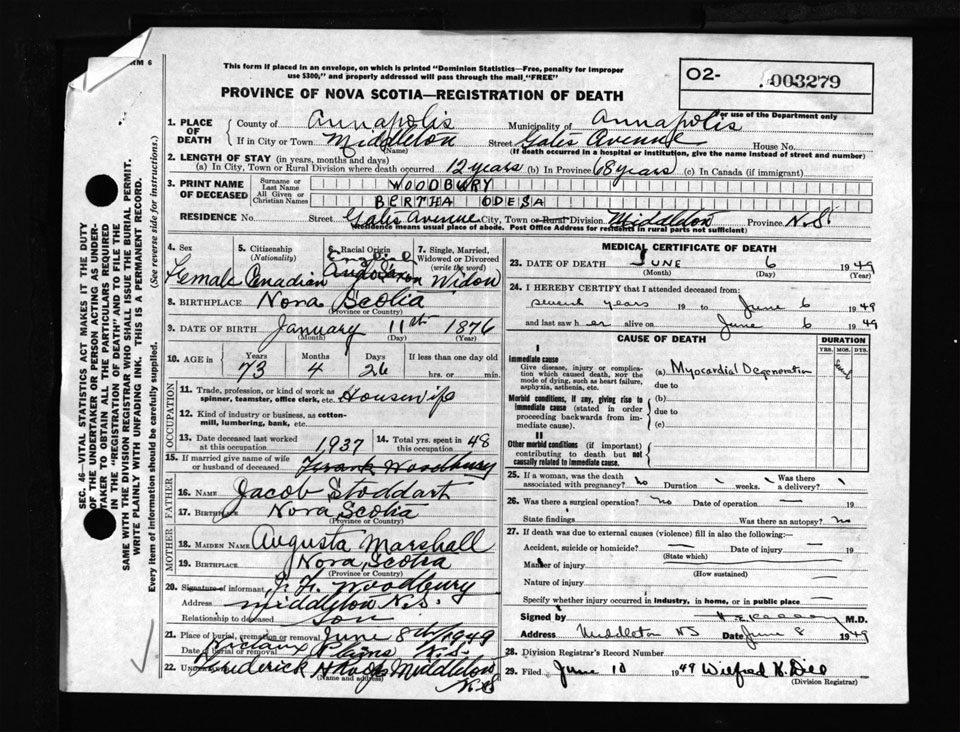 RM 6
This form if placed in an envelope, on which is printed "Dominion Statistics—Free, penalty for improper
use $300," and properly addressed will pass through the mail "FREE"
O2- 003279
For use of the Department only
PROVINCE OF NOVA SCOTIA—REGISTRATION OF DEATH
1. PLACE OF DEATH
County of Annapolis Municipality of Annapolis
If in City or Town Middleton Street Gates Avenue House No.
(Name) (If death occurred in a hospital or institution, give the name instead of street and number)
2. LENGTH OF STAY (in years, months and days)
(a) In City, Town or Rural Division where death occurred 12 years (b) In Province 68 years (c) In Canada (if immigrant)
3. PRINT NAME OF DECEASED
Surname or Last Name WOODBURY
All Given or Christian Names BERTHA ODESA
RESIDENCE No. Street Gates Avenue City, Town or Rural Division Middleton Province N.S.
(Residence means usual place of abode. Post Office Address for residents in rural parts not sufficient)
4. Sex Female
5. Citizenship (Nationality) Canadian
6. Racial Origin English Anglo Saxon
7. Single, Married, Widowed or Divorced (write the word) Widow
8. BIRTHPLACE Nova Scotia
(Province or Country)
9. DATE OF BIRTH January 11th 1876
(Month) (Day) (Year)
10. AGE in Years 73 Months 4 Days 26 If less than one day old hrs. or min.
OCCUPATION
11. Trade, profession, or kind of work as spinner, teamster, office clerk, etc. Housewife
12. Kind of industry or business, as cotton-mill, lumbering, bank, etc.
13. Date deceased last worked at this occupation 1937 14. Total yrs. spent in 48
15. If married give name of wife or husband of deceased Frank Woodbury
FATHER
16. NAME Jacob Stoddart
17. BIRTHPLACE Nova Scotia
(Province or Country)
MOTHER
18. MAIDEN NAME Augusta Marshall
19. BIRTHPLACE Nova Scotia
(Province or Country)
20. Signature of informant Woodbury
Address Middleton N.S.
Relationship to deceased Son
21. Place of burial, cremation or removal June 8th/1949
Date of burial or removal Plains N.S.
22. UNDERTAKER Frederick Middleton
(Name and address) N.S.
MEDICAL CERTIFICATE OF DEATH
23. DATE OF DEATH JUNE 6 1949
(Month) (Day) (Year)
24. I HEREBY CERTIFY that I attended deceased from:
seventh years 19 to June 6 1949
and last saw her alive on June 6 1949
CAUSE OF DEATH DURATION
YRS. MOS. DYS.
I
Immediate cause
Give disease, injury or complication which caused death, nor the mode of dying, such as heart failure, asphyxia, asthenia, etc.
(a) Myocardial Degeneration
due to
Morbid conditions, if any, giving rise to immediate cause (stated in order proceeding backwards from immediate cause).
(b)
due to
(c)
II
Other morbid conditions (if important) contributing to death but not causally related to immediate cause.
25. If a woman, was the death associated with pregnancy? no Duration — weeks. Was there a delivery? —
26. Was there a surgical operation? no Date of operation 19
State findings Was there an autopsy? no
27. If death was due to external causes (violence) fill in also the following:—
Accident, suicide or homicide? — Date of injury — 19
(State which)
Manner of injury
(How sustained)
Nature of injury
Specify whether injury occurred in industry, in home, or in public place —
Signed by M.D.
Address Middleton NS Date June 8 1949
28. Division Registrar's Record Number
29. Filed June 10 1949 Wilfred
(Division Registrar)
SEC. 46—VITAL STATISTICS ACT MAKES IT THE DUTY
OF THE UNDERTAKER OR PERSON ACTING AS UNDER-
TAKER TO OBTAIN ALL THE PARTICULARS REQUIRED
IN THE "REGISTRATION OF DEATH" AND TO FILE THE
SAME WITH THE DIVISION REGISTRAR WHO SHALL ISSUE THE BURIAL PERMIT.
WRITE PLAINLY WITH UNFADING INK. THIS IS A PERMANENT RECORD.
Every item of information should be carefully supplied. (See reverse side for instructions.)